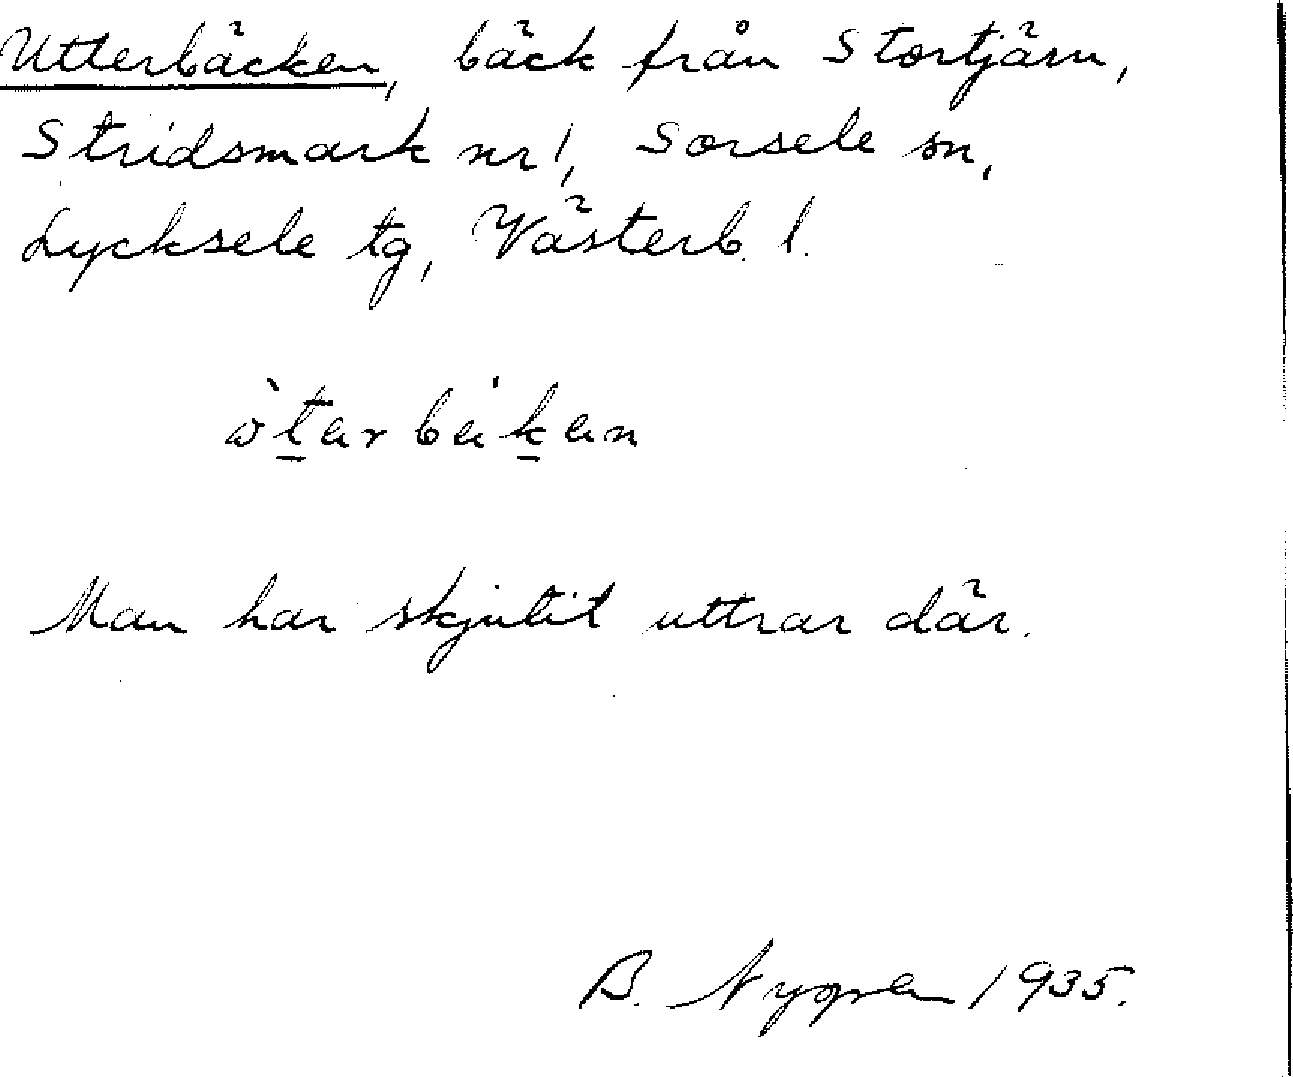 Utterbäcken, bäck från Stortjärn,
Stridsmark nr 1, Sorsele sn,
Lycksele tg, Västerb. l.
Man har skjutit uttrar där.
B. Nygren 1935.